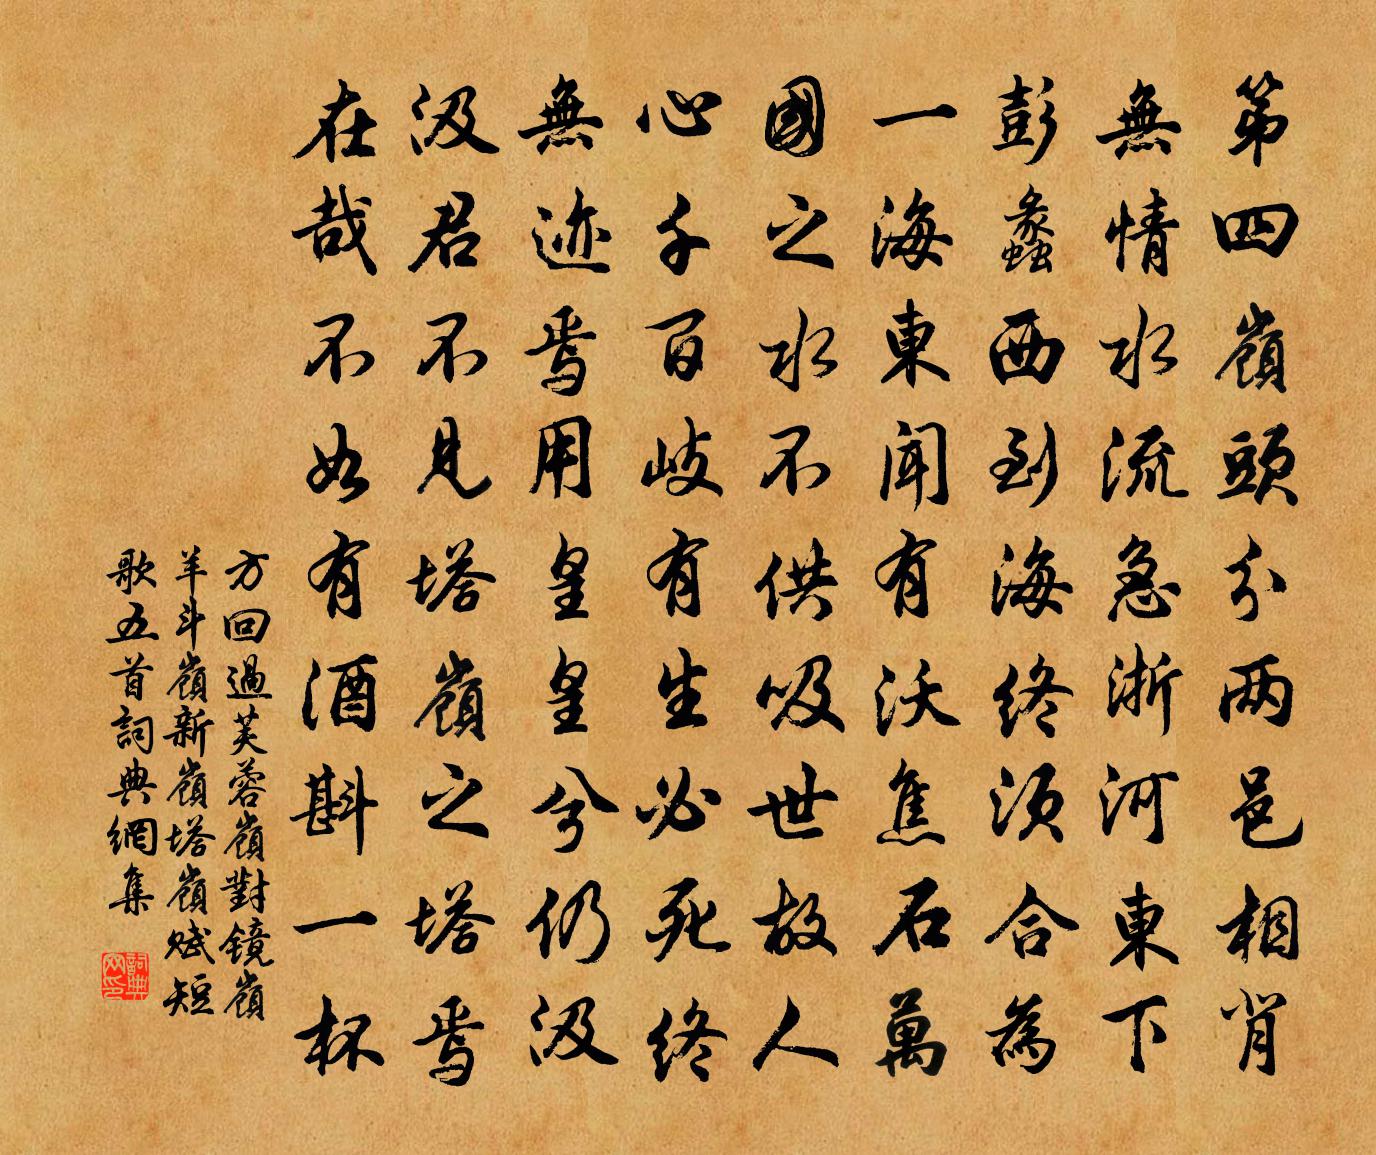 第四嶺頭分两邑相背
無情水流急浙河東下
彭蠡西到海终須合為
一海東聞有沃焦石萬
國之水不供吸世故人
心千百歧有生必死终
無迹焉用皇皇兮仍汲
汲君不見塔嶺之塔焉
在哉不如有酒斟一杯
方回過芙蓉嶺對镜嶺
羊斗嶺新嶺塔嶺赋短
歌五首詞典網集
詞典网印